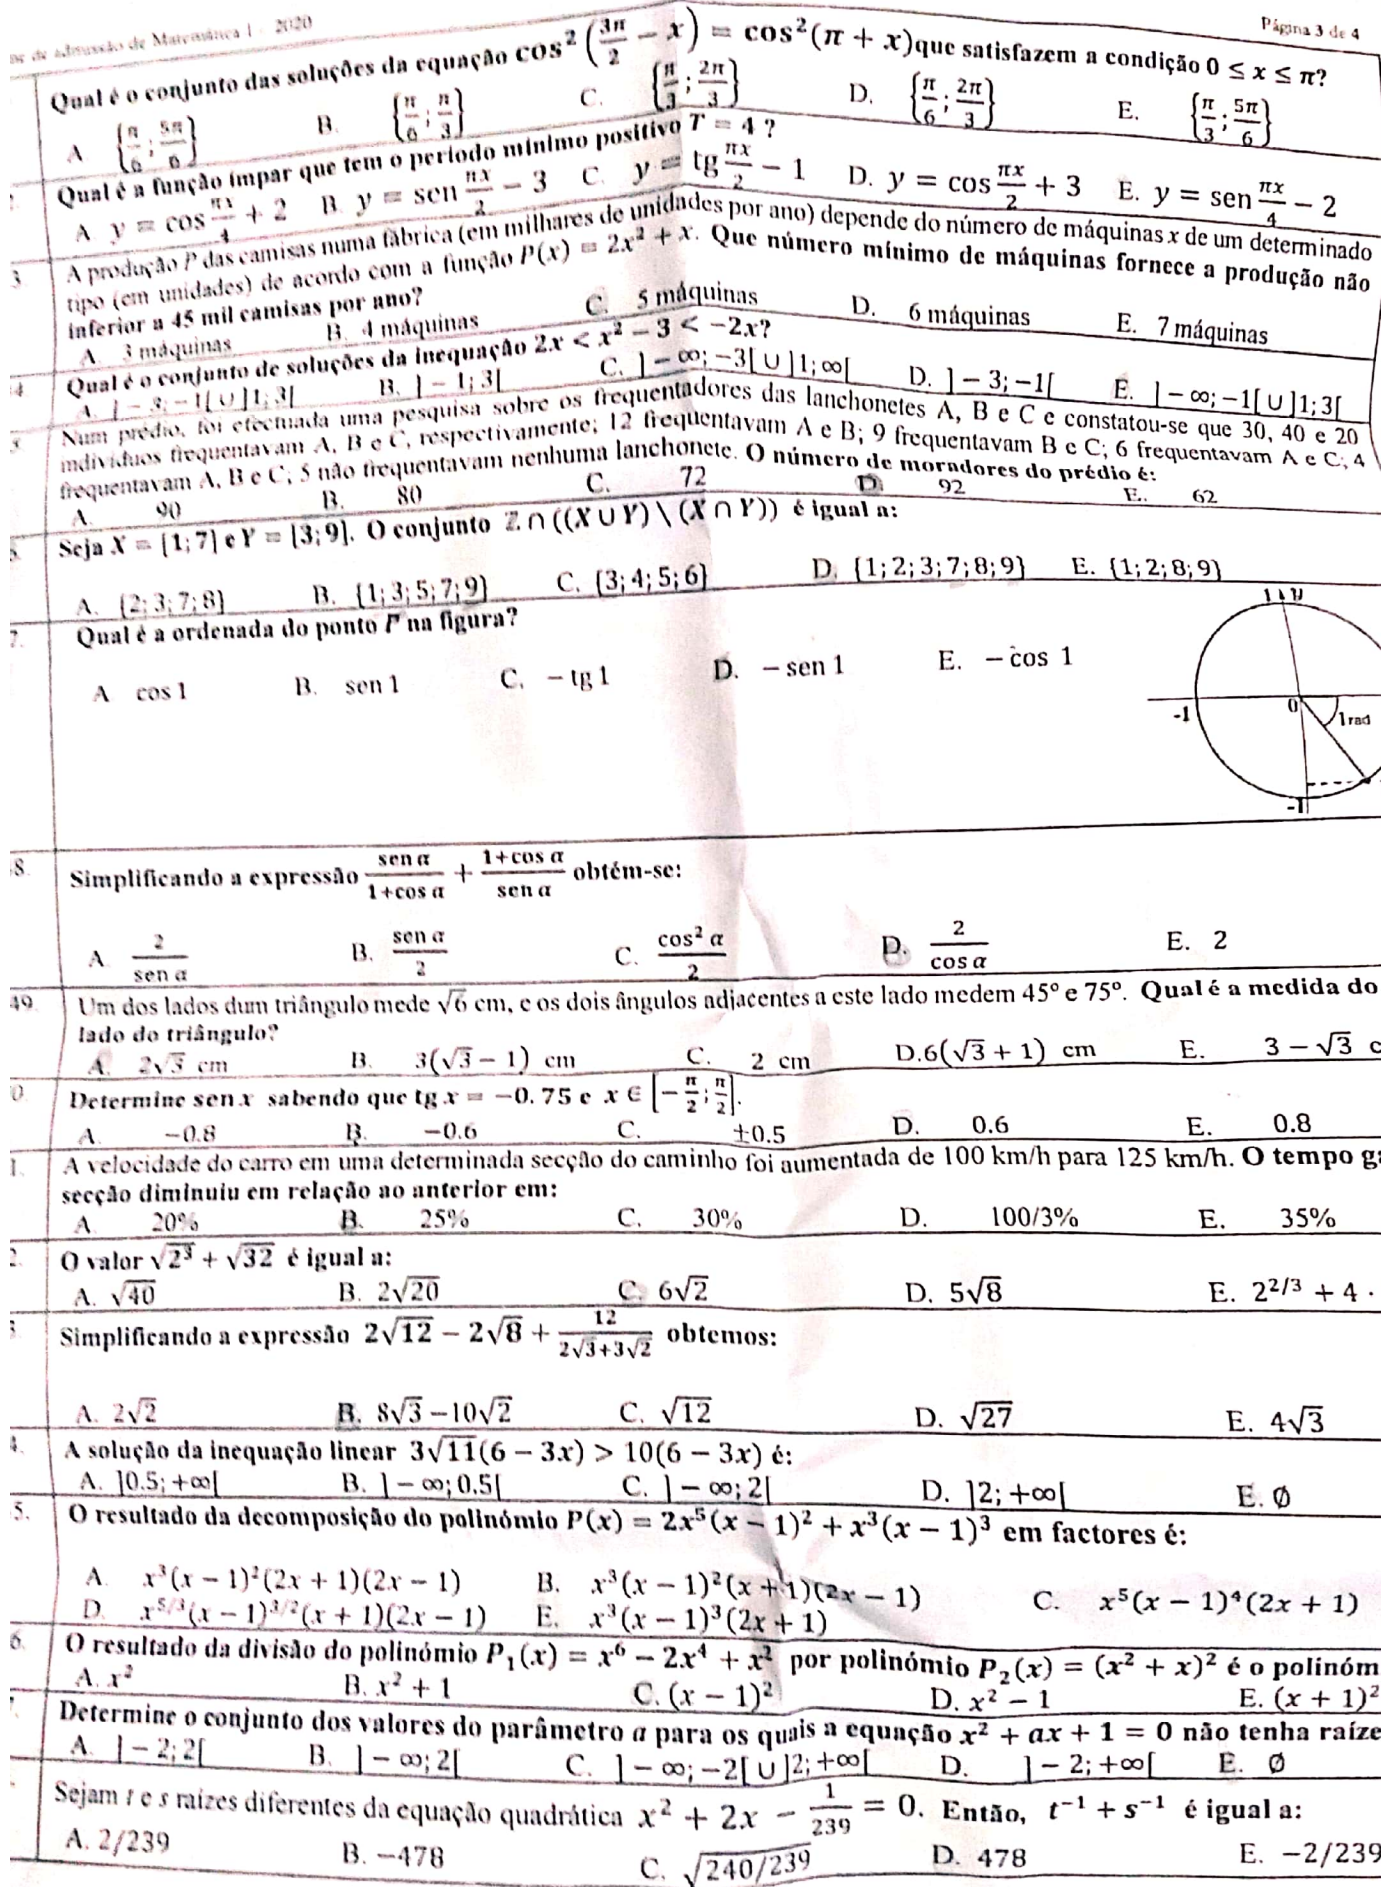 de admissão de Matemática I - 2020 Página 3 de 4
Qual é o conjunto das soluções da equação cos² (3π/2 − x) = cos²(π + x) que satisfazem a condição 0 ≤ x ≤ π?
A {π/6 ; 5π/6} B. {π/6 ; π/3} C. {π/3 ; 2π/3} D. {π/6 ; 2π/3} E. {π/3 ; 5π/6}
Qual é a função ímpar que tem o período mínimo positivo T = 4 ?
A y = cos πx/4 + 2 B. y = sen πx/2 − 3 C. y = tg πx/2 − 1 D. y = cos πx/2 + 3 E. y = sen πx/4 − 2
3 A produção P das camisas numa fábrica (em milhares de unidades por ano) depende do número de máquinas x de um determinado
tipo (em unidades) de acordo com a função P(x) = 2x² + x. Que número mínimo de máquinas fornece a produção não
inferior a 45 mil camisas por ano?
A. 3 máquinas B. 4 máquinas C. 5 máquinas D. 6 máquinas E. 7 máquinas
4 Qual é o conjunto de soluções da inequação 2x < x² − 3 < −2x?
A. ]−3; −1[ ∪ ]1; 3[ B. ]−1; 3[ C. ]−∞; −3[ ∪ ]1; ∞[ D. ]−3; −1[ E. ]−∞; −1[ ∪ ]1; 3[
Num prédio, foi efectuada uma pesquisa sobre os frequentadores das lanchonetes A, B e C e constatou-se que 30, 40 e 20
indivíduos frequentavam A, B e C, respectivamente; 12 frequentavam A e B; 9 frequentavam B e C; 6 frequentavam A e C; 4
frequentavam A, B e C; 5 não frequentavam nenhuma lanchonete. O número de moradores do prédio é:
A. 90 B. 80 C. 72 D. 92 E. 62
Seja X = [1; 7] e Y = [3; 9]. O conjunto ℤ ∩ ((X ∪ Y) \ (X ∩ Y)) é igual a:
A. {2; 3; 7; 8} B. {1; 3; 5; 7; 9} C. {3; 4; 5; 6} D. {1; 2; 3; 7; 8; 9} E. {1; 2; 8; 9}
7. Qual é a ordenada do ponto P na figura?
A cos 1 B. sen 1 C. − tg 1 D. − sen 1 E. − cos 1
1 y
-1 0 1rad
-1
8. Simplificando a expressão sen α/(1+cos α) + (1+cos α)/sen α obtém-se:
A. 2/sen α B. sen α/2 C. cos² α/2 D. 2/cos α E. 2
49. Um dos lados dum triângulo mede √6 cm, e os dois ângulos adjacentes a este lado medem 45° e 75°. Qual é a medida do
lado do triângulo?
A. 2√3 cm B. 3(√3 − 1) cm C. 2 cm D.6(√3 + 1) cm E. 3 − √3 c
0. Determine sen x sabendo que tg x = −0.75 e x ∈ [−π/2 ; π/2].
A. −0.8 B. −0.6 C. ±0.5 D. 0.6 E. 0.8
1. A velocidade do carro em uma determinada secção do caminho foi aumentada de 100 km/h para 125 km/h. O tempo ga
secção diminuiu em relação ao anterior em:
A. 20% B. 25% C. 30% D. 100/3% E. 35%
2. O valor √2³ + √32 é igual a:
A. √40 B. 2√20 C. 6√2 D. 5√8 E. 2^(2/3) + 4 ·
Simplificando a expressão 2√12 − 2√8 + 12/(2√3+3√2) obtemos:
A. 2√2 B. 8√3 −10√2 C. √12 D. √27 E. 4√3
4. A solução da inequação linear 3√11(6 − 3x) > 10(6 − 3x) é:
A. ]0.5; +∞[ B. ]−∞; 0.5[ C. ]−∞; 2[ D. ]2; +∞[ E. ∅
5. O resultado da decomposição do polinómio P(x) = 2x⁵(x − 1)² + x³(x − 1)³ em factores é:
A. x³(x − 1)²(2x + 1)(2x − 1) B. x³(x − 1)²(x + 1)(2x − 1) C. x⁵(x − 1)⁴(2x + 1)
D. x^(5/3)(x − 1)^(3/2)(x + 1)(2x − 1) E. x³(x − 1)³(2x + 1)
6. O resultado da divisão do polinómio P₁(x) = x⁶ − 2x⁴ + x² por polinómio P₂(x) = (x² + x)² é o polinóm
A. x² B. x² + 1 C. (x − 1)² D. x² − 1 E. (x + 1)²
Determine o conjunto dos valores do parâmetro a para os quais a equação x² + ax + 1 = 0 não tenha raíze
A. ]−2; 2[ B. ]−∞; 2[ C. ]−∞; −2[ ∪ ]2; +∞[ D. ]−2; +∞[ E. ∅
Sejam t e s raízes diferentes da equação quadrática x² + 2x − 1/239 = 0. Então, t⁻¹ + s⁻¹ é igual a:
A. 2/239 B. −478 C. √240/239 D. 478 E. −2/239